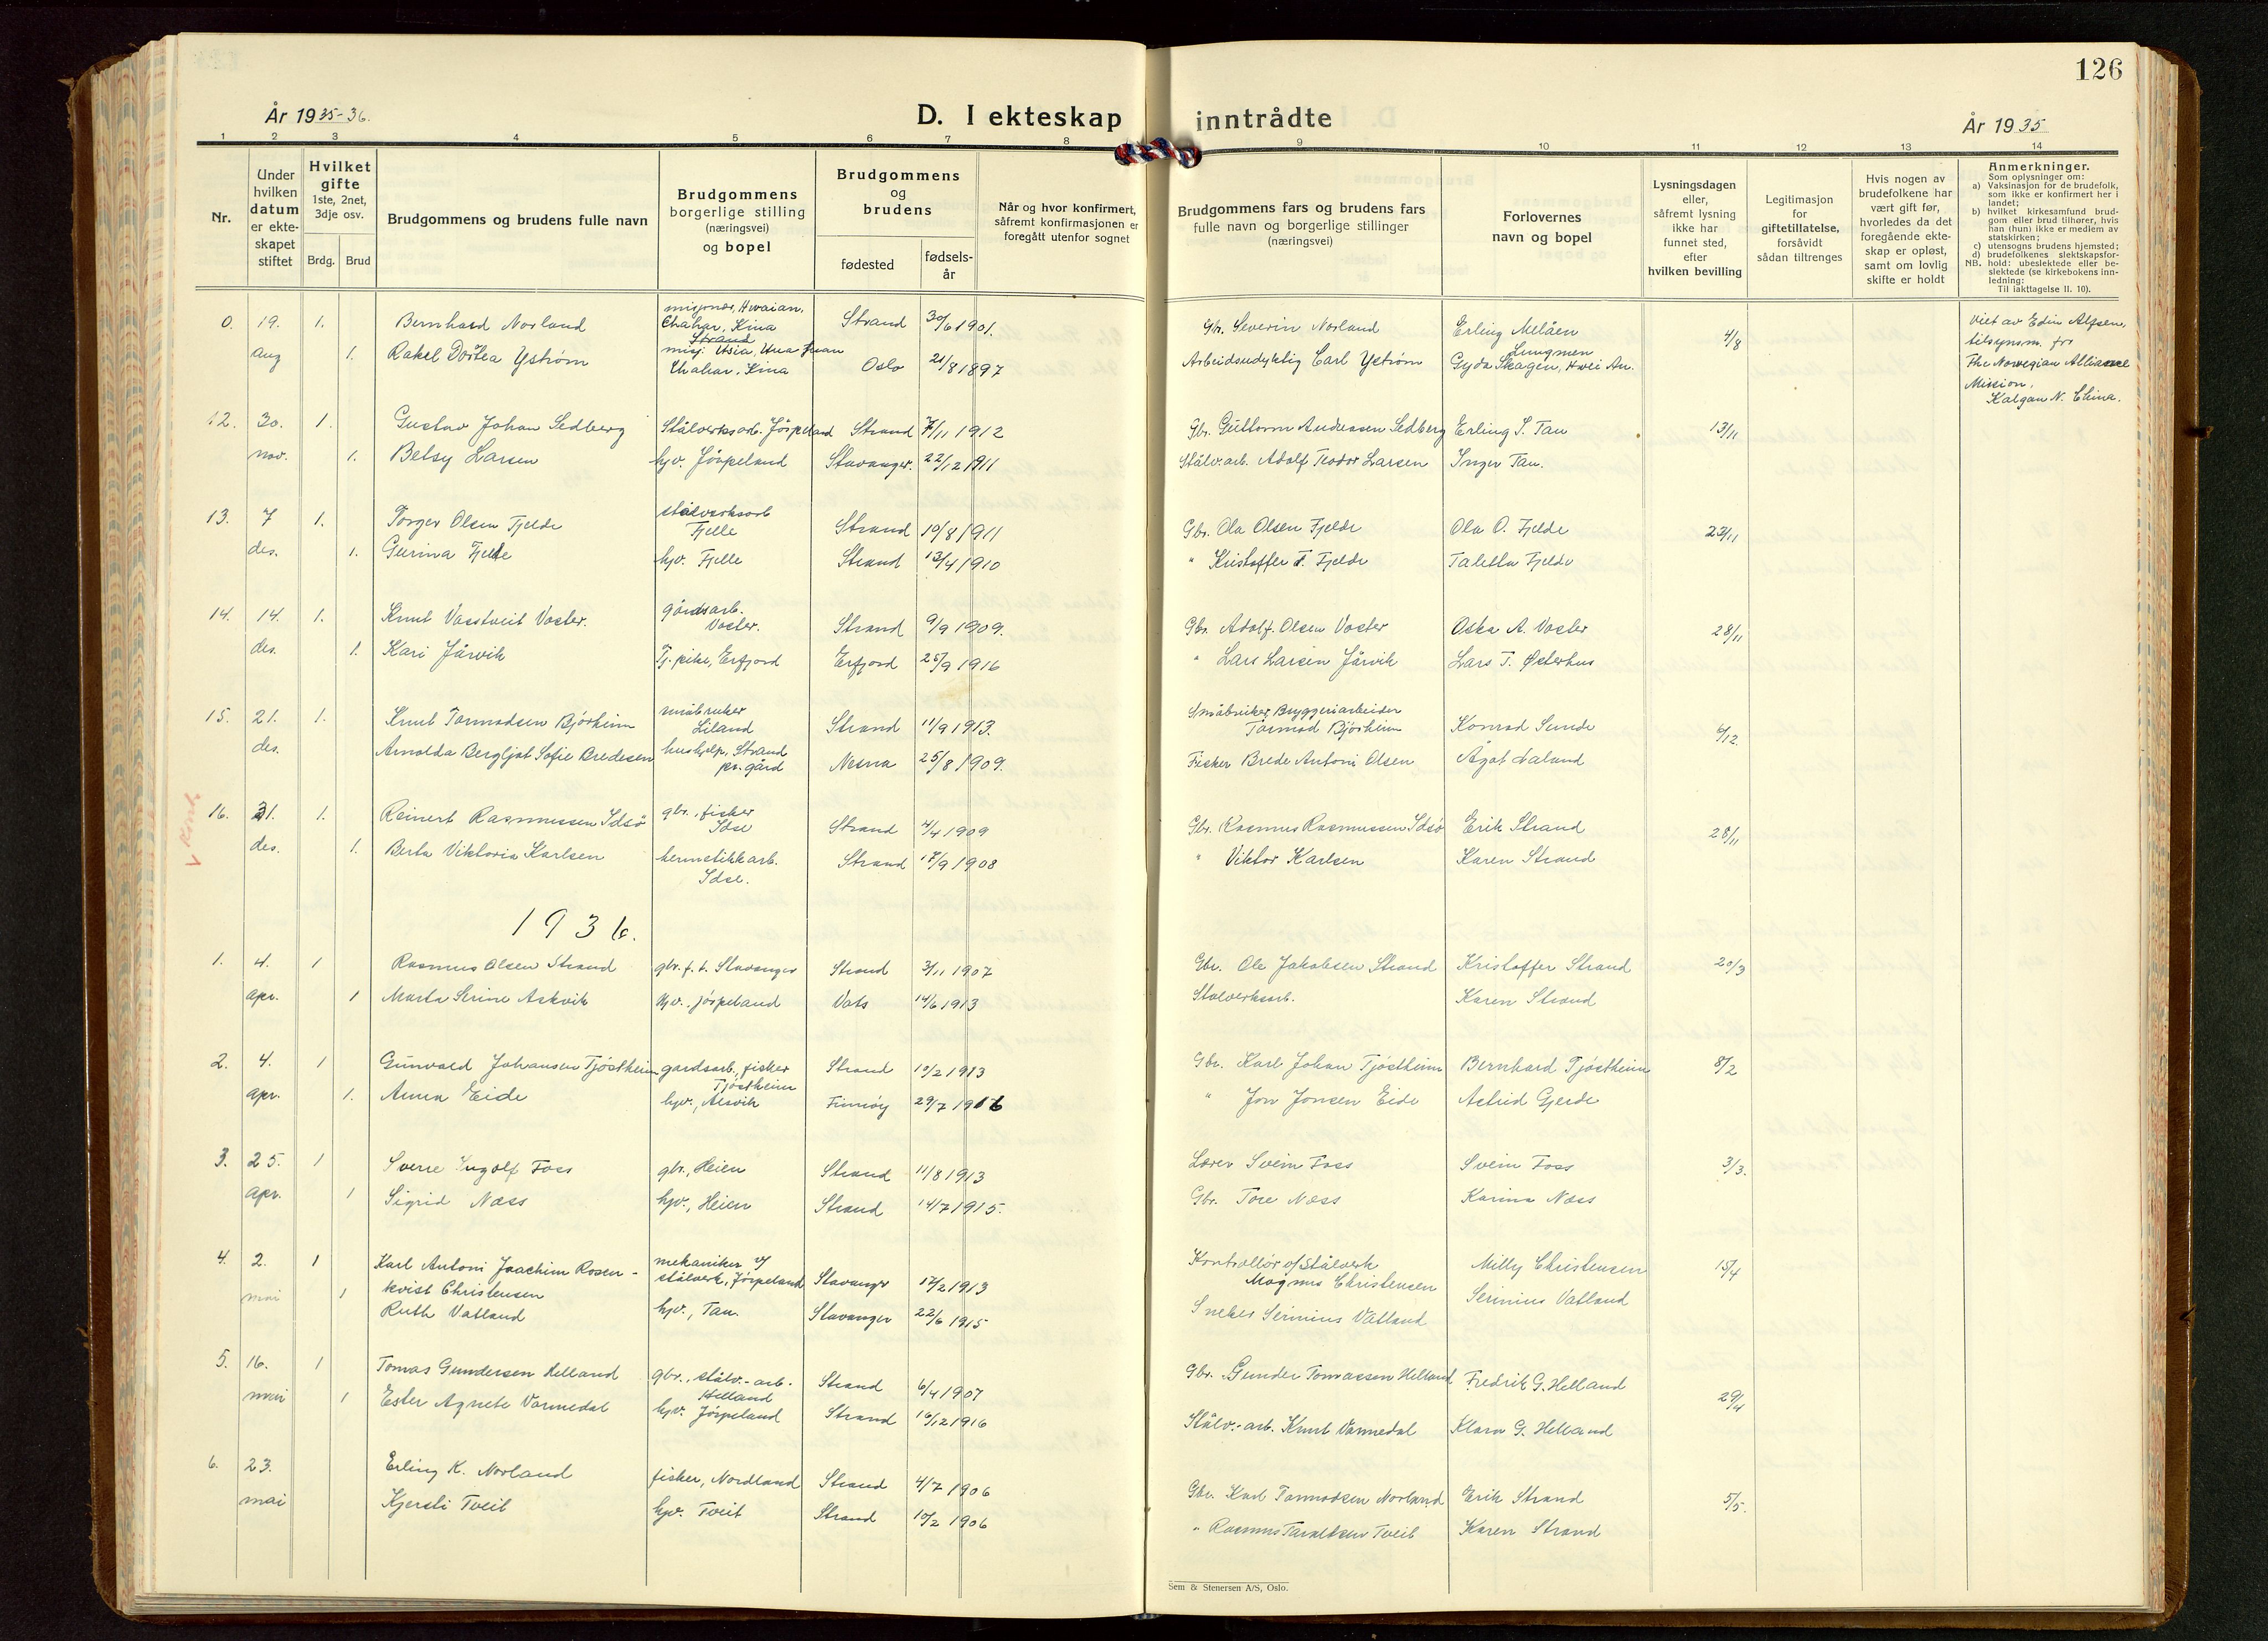 126
År 1935-36.
D. I ekteskap inntrådte
År 1935
1 2 3 4 5 6 7 8 9 10 11 12 13 14
Nr.
Under hvilken datum er ekteskapet stiftet
Hvilket gifte 1ste, 2net, 3dje osv.
Brdg. Brud
Brudgommens og brudens fulle navn
Brudgommens borgerlige stilling (næringsvei) og bopel
Brudgommens og brudens
fødested
fødselsår
Når og hvor konfirmert, såfremt konfirmasjonen er foregått utenfor sognet
Brudgommens fars og brudens fars fulle navn og borgerlige stillinger (næringsvei)
Forlovernes navn og bopel
Lysningsdagen eller, såfremt lysning ikke har funnet sted, efter hvilken bevilling
Legitimasjon for giftetillatelse, forsåvidt sådan tiltrenges
Hvis nogen av brudefolkene har vært gift før, hvorledes da det foregående ekteskap er opløst, samt om lovlig skifte er holdt
Anmerkninger.
Som oplysninger om:
a) Vaksinasjon for de brudefolk, som ikke er konfirmert her i landet;
b) hvilket kirkesamfund brudgom eller brud tilhører, hvis han (hun) ikke er medlem av statskirken;
c) utensogns brudens hjemsted;
d) brudefolkenes slektskapsforhold: ubeslektede eller beslektede (se kirkebokens innledning:
NB.
Til iakttagelse II. 10).
0. 19. 1. Bernhard Norland misjonær, Hwaian, Chahar, Kina Strand 30/6 1901. Gbr. Severin Norland Erling Melåen 4/8 Viet av Edin Alfsen, tilsynsm. for
aug 1. Rakel Dortea Yström Chahar, Kina Oslo 21/8 1897 Arbeidsudyktig Carl Yström Gyda Skagen, Hwei An. The Norwegian Alliance Mission, Kalgan N. China.
12. 30. 1. Gustav Johan Sedberg Stålverksarb. Jörpeland Strand 7/11 1912 Gbr. Guttorm Andreassen Sedberg Erling S. Tau 13/11
nov. 1. Betsy Larsen hjv. Jörpeland Stavanger. 22/12 1911 Stålv. arb. Adolf Teodor Larsen Inger Tau.
13. 7 1. Torger Olsen Fjelde stålverksarb Fjelle Strand 10/8 1911 Gbr. Ola Olsen Fjelde Ola O. Fjelde 23/11
des. 1. Gurina Fjelde hjv. Fjelle Strand 13/4 1910 " Kristoffer T. Fjelde Taletta Fjelde
14. 14. 1. Knut Vasstveit Voster. gårdsarb. Voster. Strand 9/9 1909. Gbr. Adolf Olsen Voster Oska A. Voster 28/11
des. 1. Kari Jårvik Tj. pike, Erfjord Erfjord 25/9 1916 " Lars Larsen Jårvik Lars T. Østerhus
15. 21. 1. Knut Tormodsen Bjórheim småbruker Liland Strand 11/9 1913. Småbruker, Bryggeriarbeider Tormod Bjórheim Konrad Sunde 6/12.
des. Arnolda Bergljot Sofie Bredesen hushjelp, Strand pr. gård Nesna 25/8 1909. Fisker Brede Antoni Olsen Ågot Haland
16. 31. 1. Reinert Rasmussen Idsö gbr., fisker Idse Strand 4/4 1909 Gbr. Rasmus Rasmussen Idsö Erik Strand 28/11
des. 1. Berta Viktoria Karlsen hermetikkarb. Idse. Strand 17/9 1908 " Viktor Karlsen Karen Strand
1936.
1. 4. 1 Rasmus Olsen Strand gbr. f. t. Stavanger Strand 3/11 1907 Gbr. Ole Jakobsen Strand Kristoffer Strand 20/3
apr. 1 Marta Serine Askvik hjv., jörpeland Vats 14/6 1913 Stålverksarb. Karen Strand
2. 4. 1 Gunvald Johansen Tjöstheim gardsarb., fisker Tjöstheim Strand 10/2 1913 Gbr. Karl Johan Tjöstheim Bernhard Tjöstheim 8/2
apr. 1. Anna Eide hjv., Alsvik Finnöy 29/7 1916 " Jon Jonsen Eide Astrid Gjerde
3. 25. 1 Sverre Ingolf Foss gbr., Heien Strand 11/8 1913 Lærer Svein Foss Svein Foss 3/3.
apr. 1 Sigrid Næss hjv., Heien Strand 14/7 1915. Gbr. Tore Næss Karina Næss
4. 2. 1 Karl Antoni Joachim Rosenkvist Christensen mekaniker v/ stålverk, Jörpeland Stavanger 17/2 1913 Kontrollör v/ Stålverk Magnus Christensen Milly Christensen 15/4
mai 1 Ruth Vatland hjv., Tau. Stavanger 22/6 1915 Snekker Serinius Vatland Serinius Vatland
5. 16. 1 Tomas Gundersen Helland gbr., stålv.-arb. Helland Strand 6/4 1907 Gbr. Gunder Tomassen Helland Fredrik G. Helland 29/4
mai 1 Ester Agnete Varmedal hjv. Jörpeland Strand 16/12 1916 Stålv.-arb. Knut Varmedal Klara G. Helland
6. 23. Erling K. Norland fisker, Nordland Strand 4/7 1906 Gbr. Karl Tormodsen Norland Erik Strand 5/5.
mai Kjersti Tveit hjv. Tveit Strand 10/2 1906 " Rasmus Taraldsen Tveit Karen Strand
Sem & Stenersen A/S, Oslo.